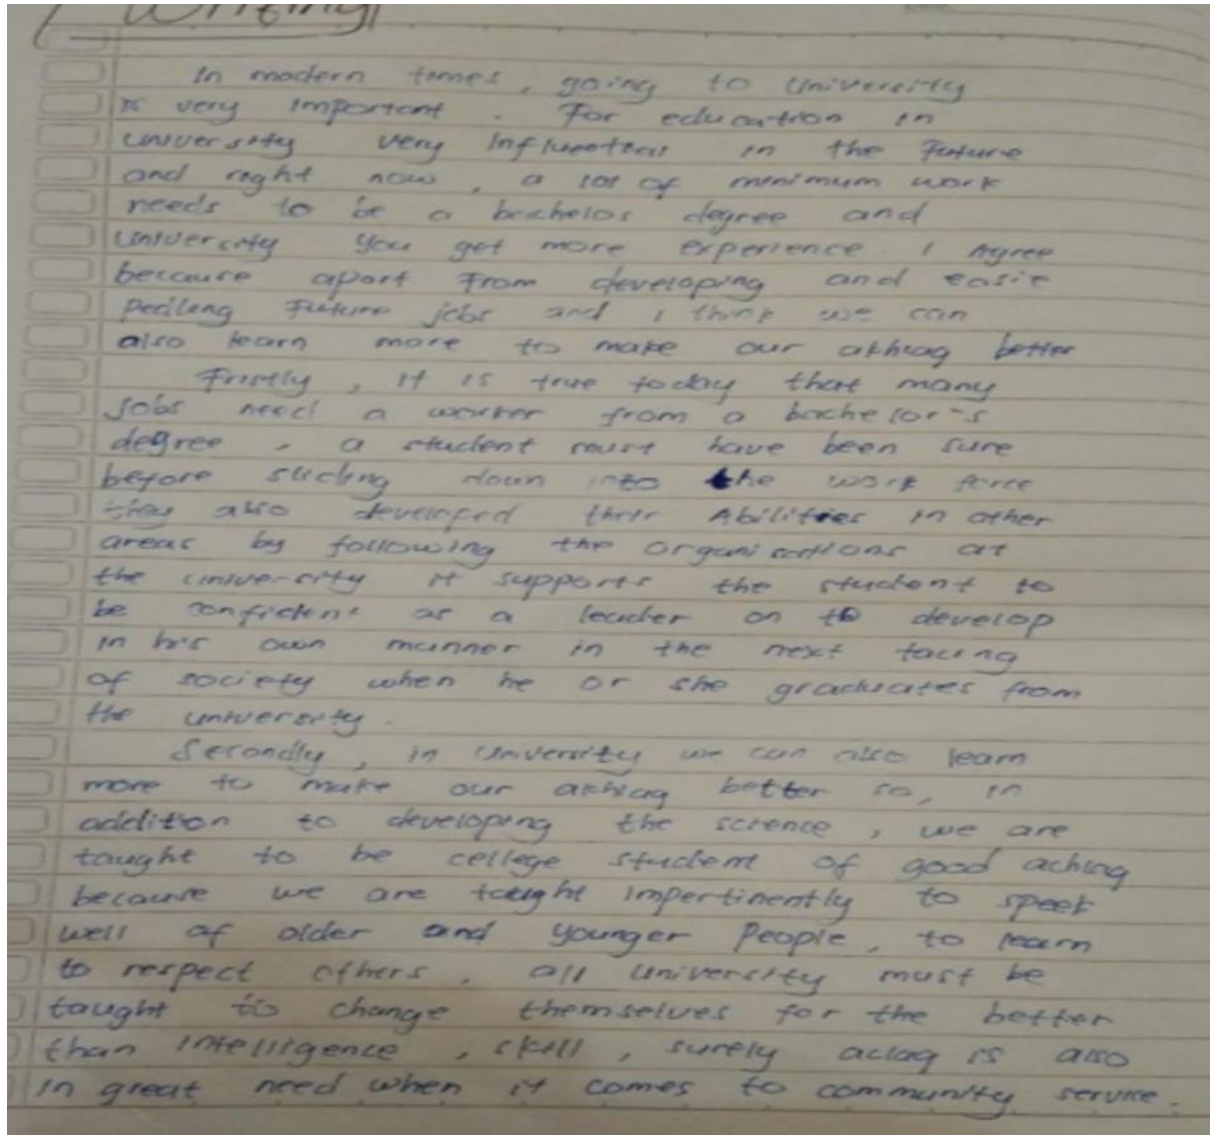 Writing
In modern times, going to University
is very important. For education in
university very Influential in the Future
and right now, a lot of minimum work
needs to be a bachelos degree and
univercity you get more experience I Agree
because apart From developing and easie
Future jobs and I think we can
also learn more to make our akhlag better
Fristly, it is true today that many
Jobs need a worker from a bachelor's
degree, a student must have been sure
before down into the work force
they also developed their Abilities in other
areas by following the organisations at
the university it supports the student to
be confident as a leader on to develop
in his own manner in the next facing
of society when he or she graduates from
the university.
Secondly, in University we can also learn
more to make our akhlag better so, in
addition to developing the science, we are
taught to be college student of good aching
because we are taught impertinently to speek
well of older and younger People, to learn
to respect others. all university must be
taught to change themselves for the better
than intelligence, skill, surely aclag is also
in great need when it comes to community service.